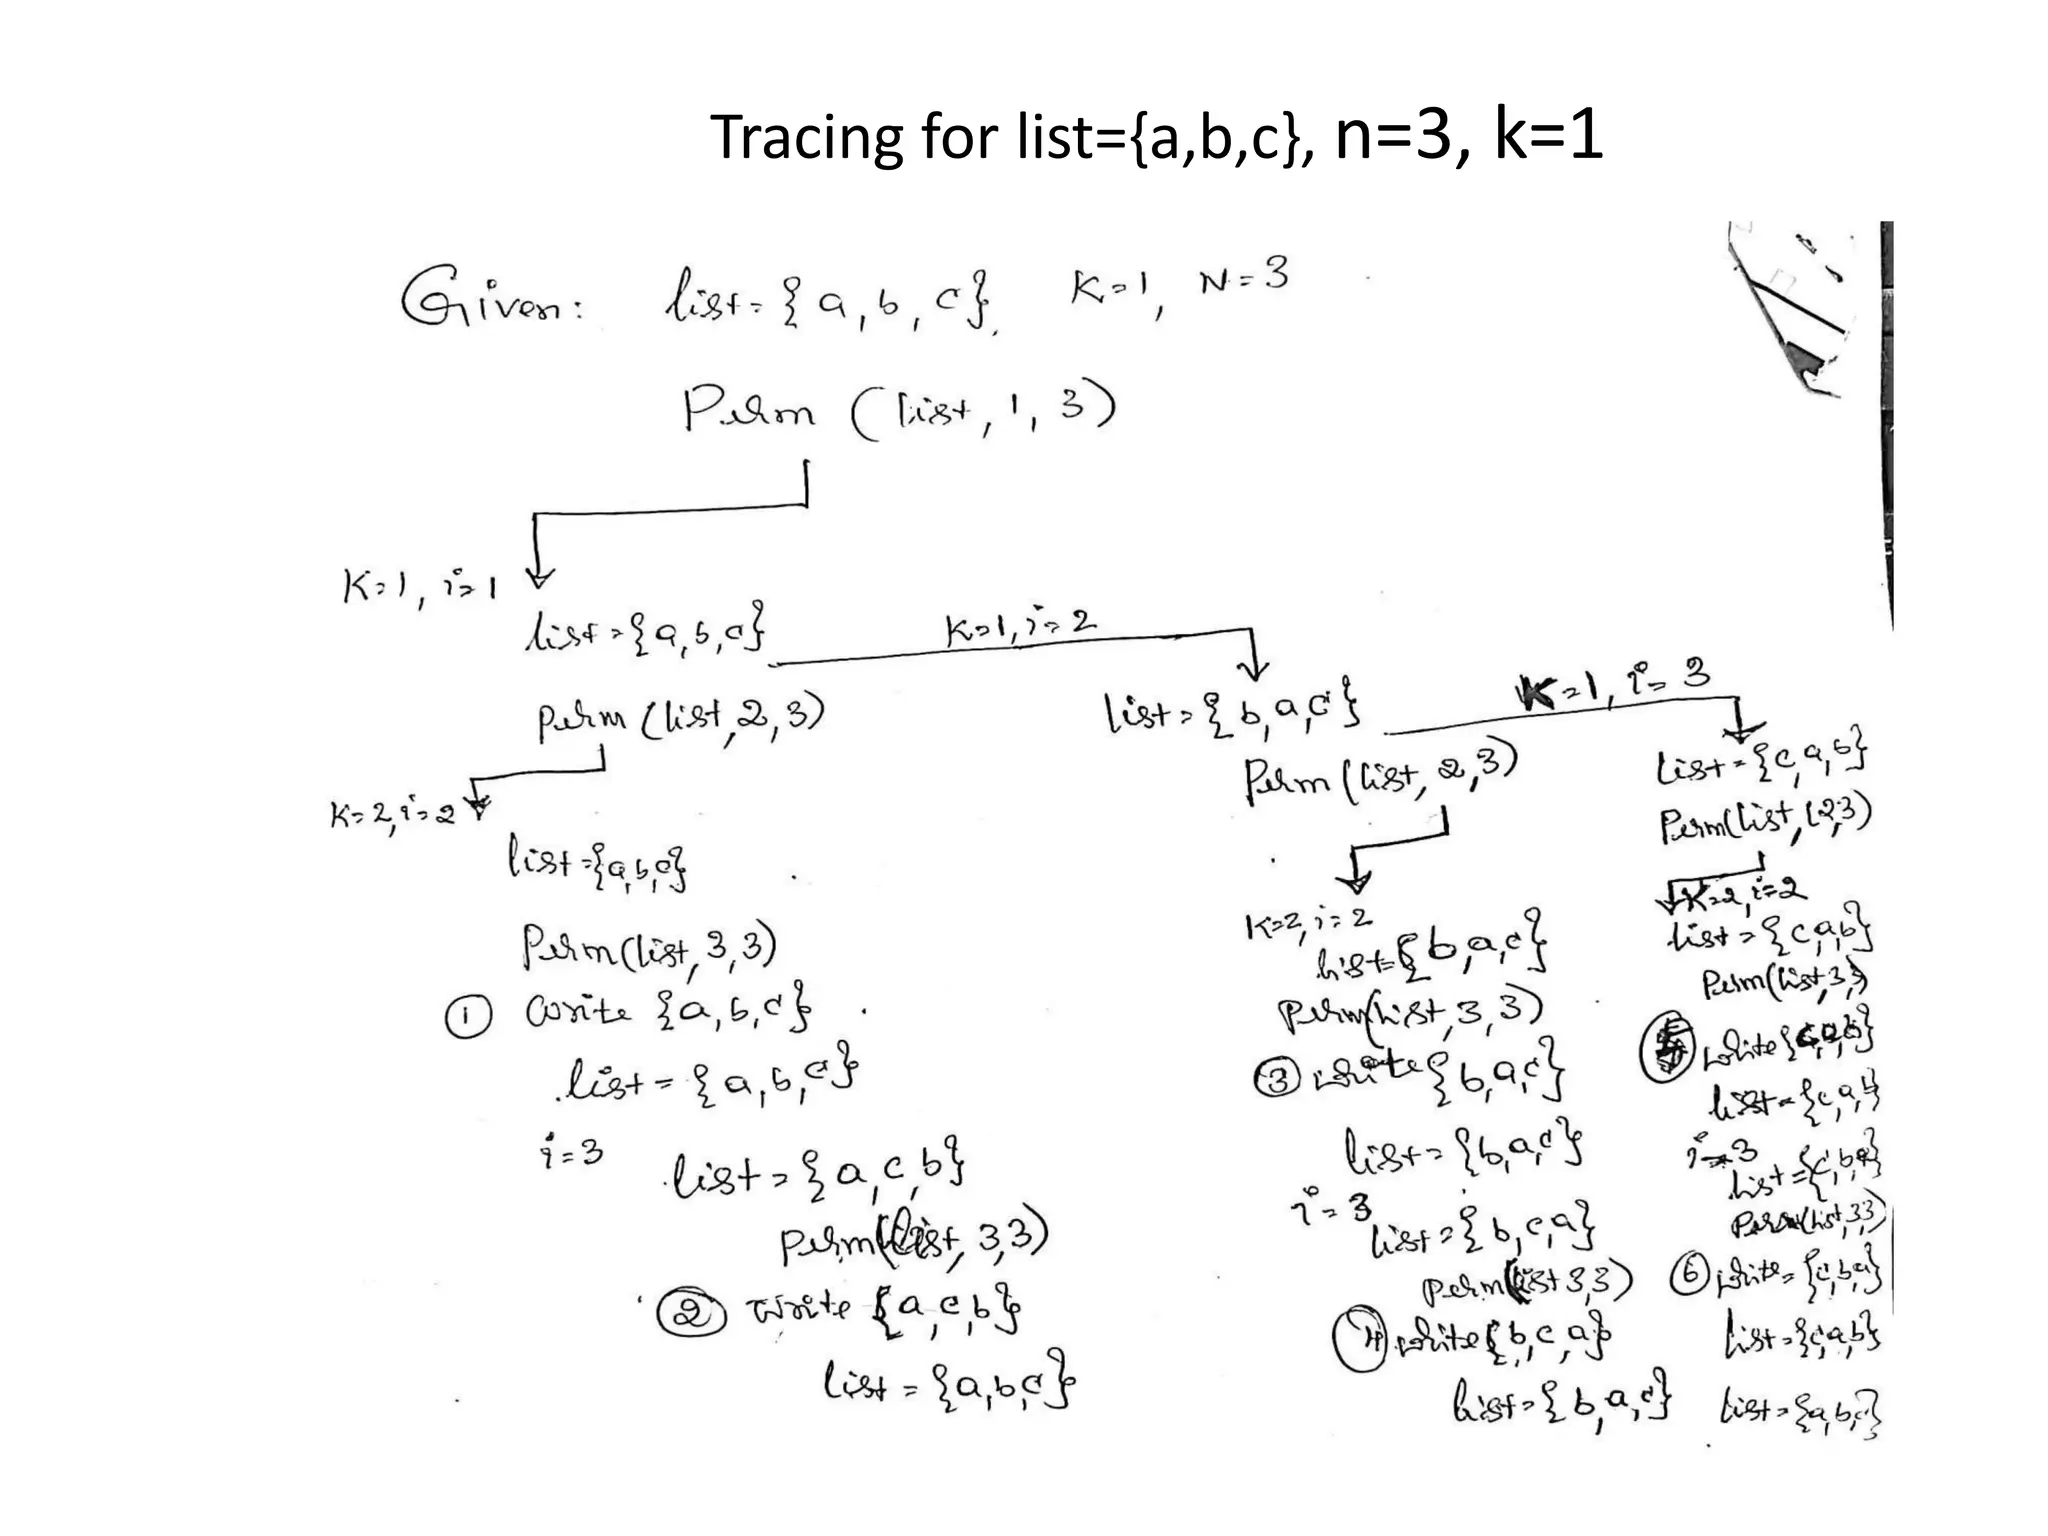 Tracing for list={a,b,c}, n=3, k=1
Given: list={a,b,c}, K=1, N=3
Perm (list, 1, 3)
K=1, i=1
list={a,b,c}
Perm (list, 2, 3)
K=2, i=2
list={a,b,c}
Perm (list, 3, 3)
① write {a,b,c}
list={a,b,c}
i=3
list={a,c,b}
Perm(list, 3,3)
② write {a,c,b}
list={a,b,c}
K=1, i=2
list={b,a,c}
Perm (list, 2,3)
K=2, i=2
list={b,a,c}
Perm(list, 3, 3)
③ write {b,a,c}
list={b,a,c}
i=3
list={b,c,a}
Perm(list 3,3)
④ write {b,c,a}
list={b,a,c}
K=1, i=3
list={c,a,b}
Perm(list, 2,3)
K=2, i=2
list={c,a,b}
Perm(list,3,3)
⑤ write{c,a,b}
list={c,a,b}
i=3
list={c,b,a}
Perm(list,3,3)
⑥ write={c,b,a}
list={c,a,b}
list={a,b,c}